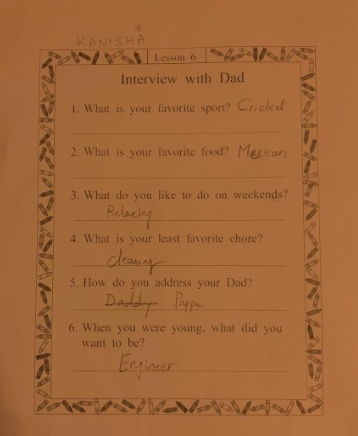 KANISHA
Lesson 6
Interview with Dad
1. What is your favorite sport? Cricket
2. What is your favorite food? Mexican
3. What do you like to do on weekends?
Relaxing
4. What is your least favorite chore?
cleaning
5. How do you address your Dad?
Daddy Pappa
6. When you were young, what did you
want to be?
Engineer